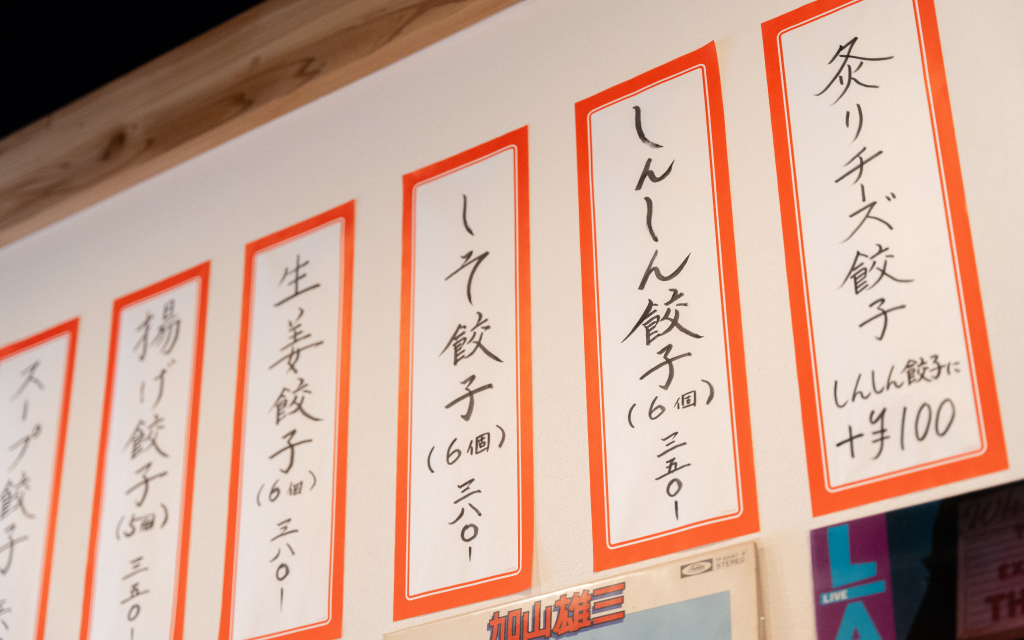 炙りチーズ餃子
しんしん餃子に
+¥100
しんしん餃子
(6個)
三五〇-
しそ餃子
(6個)
三八〇-
生姜餃子
(6個)
三八〇-
揚げ餃子
(5個)
三五〇-
スープ餃子
加山雄三
STEREO
LIVE